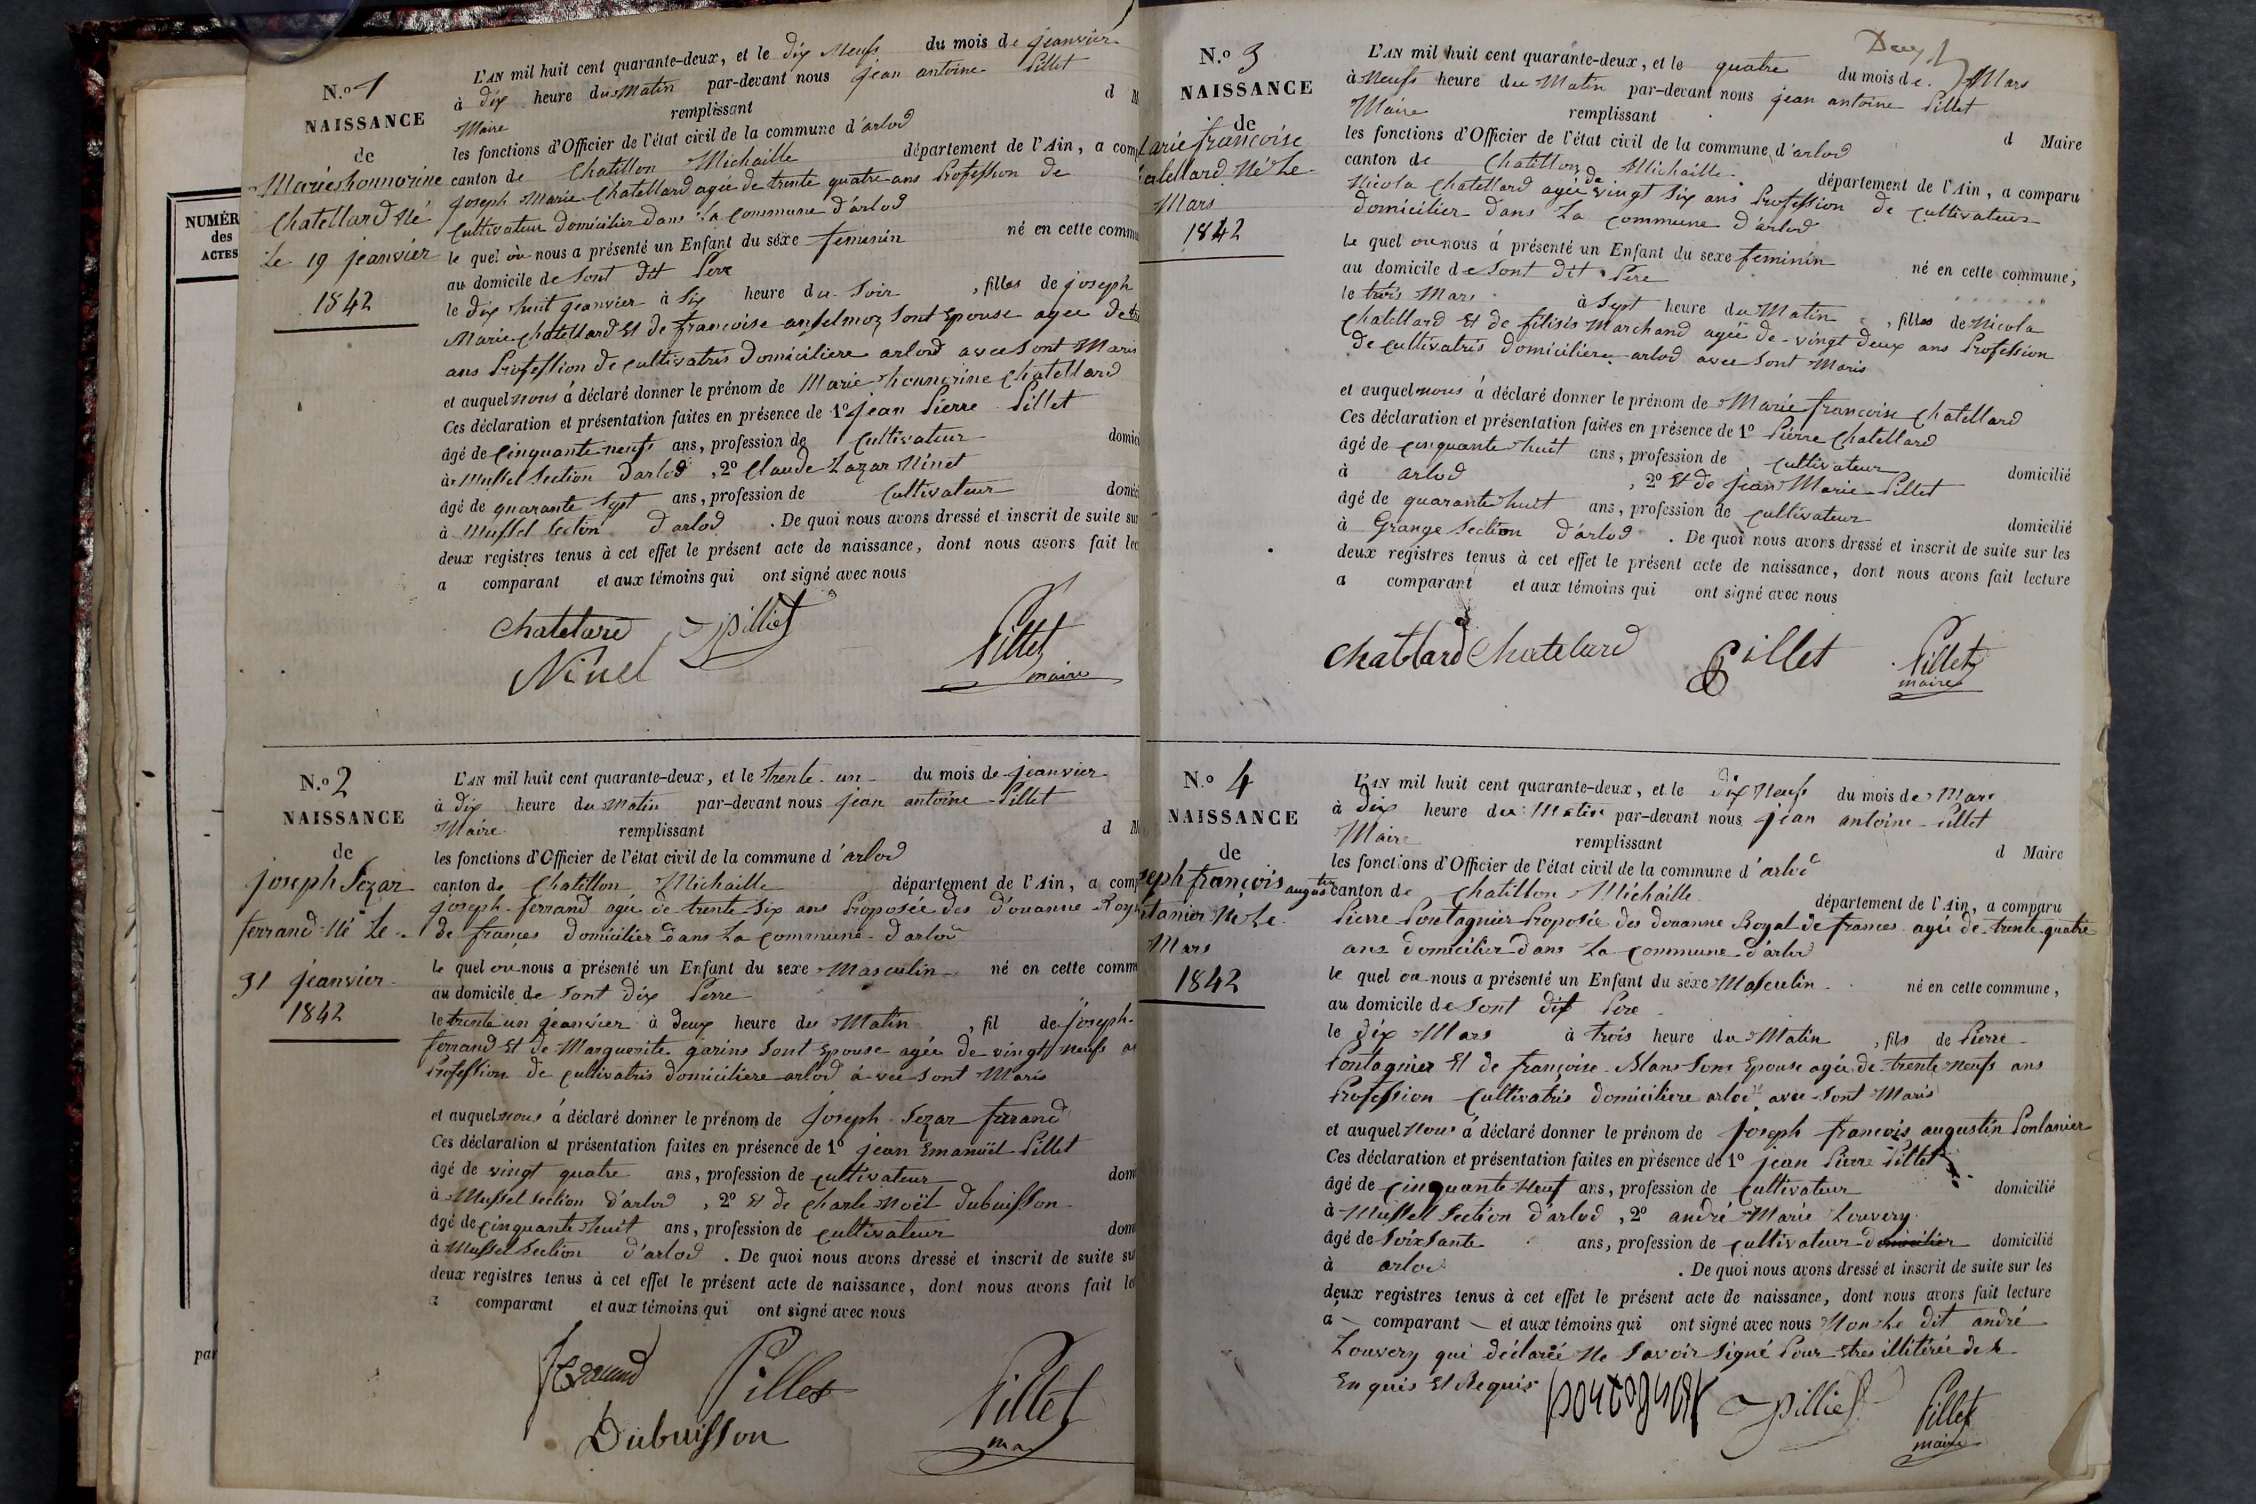 NUMÉR
des
ACTES
par
N.o 1
NAISSANCE
de
Marie honnorine
Chatellard Né
Le 19 jeanvier
1842
L'AN mil huit cent quarante-deux, et le dix Neufs du mois de jeanvier
à dix heure du Matin par-devant nous jean antoine Pillet
Maire remplissant d M
les fonctions d'Officier de l'état civil de la commune d'arlod
canton de Chatillon Michaille département de l'Ain, a comp
joseph Marie Chatellard agée de trente quatre ans Profession de
Cultivateur domicilier dans La Commune d'arlod
le quel où nous a présenté un Enfant du séxe feminin né en cette commu
au domicile de Sont dit Pere
le dix huit jeanvier à Six heure du Soir , filles de joseph
Marie Chatellard Et de françoise anselmoz Sont Epouse agee de
ans Profession de cultivatris domiciliere arlod avec Sont Maris
et auquel nous à déclaré donner le prénom de Marie honnorine Chatellard
Ces déclaration et présentation faites en présence de 1o jean Pierre Pillet
âgé de Cinquante neufs ans, profession de Cultivateur domici
à Mussel Section D'arlod , 2o Claude Lazar Ninet
âgé de quarante Sept ans, profession de Cultivateur domici
à Mussel Section d'arlod . De quoi nous avons dressé et inscrit de suite sur
deux registres tenus à cet effet le présent acte de naissance, dont nous avons fait lec
a comparant et aux témoins qui ont signé avec nous
Chatelard Pilliet Pillet
Ninet maire
N.o 2
NAISSANCE
de
joseph Sezar
ferrand Né Le
31 jeanvier
1842
L'AN mil huit cent quarante-deux, et le trente un du mois de jeanvier
à dix heure du Matin par-devant nous jean antoine Pillet
Maire remplissant d M
les fonctions d'Officier de l'état civil de la commune d'arlod
canton de Chatillon Michaille département de l'Ain, a comp
joseph ferrand agée de trente Six ans Proposée des d'ouanne Roy
de frances domicilier dans La commune d'arlod
le quel ou nous a présenté un Enfant du sexe Masculin né en cette comm
au domicile de Sont dix Perre
le trente un jeanvier à deux heure du Matin , fil de joseph
ferrand Et de Marguerite garins Sont Epouse agée de vingt neufs
Profession de cultivatris domiciliere arlod à vec Sont Maris
et auquel nous à déclaré donner le prénom de joseph Sezar ferrand
Ces déclaration et présentation faites en présence de 1o jean Emanuël Pillet
âgé de vingt quatre ans, profession de cultivateur dom
à Mussel Section d'arlod , 2o Et de Charle Noël Dubuisson
âgé de cinquante huit ans, profession de cultivateur dom
à Mussel Section d'arlod . De quoi nous avons dressé et inscrit de suite su
deux registres tenus à cet effet le présent acte de naissance, dont nous avons fait le
a comparant et aux témoins qui ont signé avec nous
Pillet Pillet
Dubuisson ma
Deux
N.o 3
NAISSANCE
de
arie françoise
atellard Né Le
Mars
1842
L'AN mil huit cent quarante-deux, et le quatre du mois de Mars
à Neufs heure du Matin par-devant nous jean antoine Pillet
Maire remplissant d Maire
les fonctions d'Officier de l'état civil de la commune d'arlod
canton de Chatillon Michaille département de l'Ain, a comparu
Nicola Chatellard agée de vingt Six ans Profession de cultivateur
domicilier dans La commune d'arlod
le quel ou nous à présenté un Enfant du sexe feminin né en cette commune,
au domicile de Sont dit Pere
le trois Mars à Sept heure du Matin , filles de Nicola
Chatellard Et de filisis Marchand agée de vingt deux ans Profession
de cultivatris domiciliere arlod avec Sont Maris
et auquel nous à déclaré donner le prénom de Marie françoise Chatellard
Ces déclaration et présentation faites en présence de 1o Pierre Chatellard
âgé de cinquante huit ans, profession de cultivateur domicilié
à arlod , 2o Et de jean Marie Pillet
âgé de quarante huit ans, profession de cultivateur domicilié
à Grange Section d'arlod . De quoi nous avons dressé et inscrit de suite sur les
deux registres tenus à cet effet le présent acte de naissance, dont nous avons fait lecture
a comparant et aux témoins qui ont signé avec nous
Chatelard Pillet Pillet
maire
N.o 4
NAISSANCE
de
seph françois augustin
tanier Né Le
Mars
1842
L'AN mil huit cent quarante-deux, et le dix Neufs du mois de Mars
à dix heure du Matin par-devant nous jean antoine Pillet
Maire remplissant d Maire
les fonctions d'Officier de l'état civil de la commune d'arlod
canton de Chatillon Michaille département de l'Ain, a comparu
Pierre Pontagnier Proposée des douanne Royal de frances agée de trente quatre
ans domicilier dans La commune d'arlod
le quel ou nous a présenté un Enfant du sexe Masculin né en cette commune,
au domicile de Sont dit Pere
le dix Mars à trois heure du Matin , fils de Pierre
Pontagnier Et de françoise Blans Sont Epouse agée de trente neufs ans
Profession Cultivatris domiciliere arlod avec Sont Maris
et auquel Nous à déclaré donner le prénom de joseph françois augustin Pontanier
Ces déclaration et présentation faites en présence de 1o jean Pierre Pillet
âgé de Cinquante Neuf ans, profession de Cultivateur domicilié
à Mussel Section d'arlod , 2o andré Marie Louvery
âgé de Soixsante ans, profession de cultivateur domicilier domicilié
à arlod . De quoi nous avons dressé et inscrit de suite sur les
deux registres tenus à cet effet le présent acte de naissance, dont nous avons fait lecture
a comparant et aux témoins qui ont signé avec nous Non Le dit andré
Louvery qui déclarée Ne Savoir Signé Pour Etres illitérée de
Enquis Et Requis Pilliet Pillet
maire